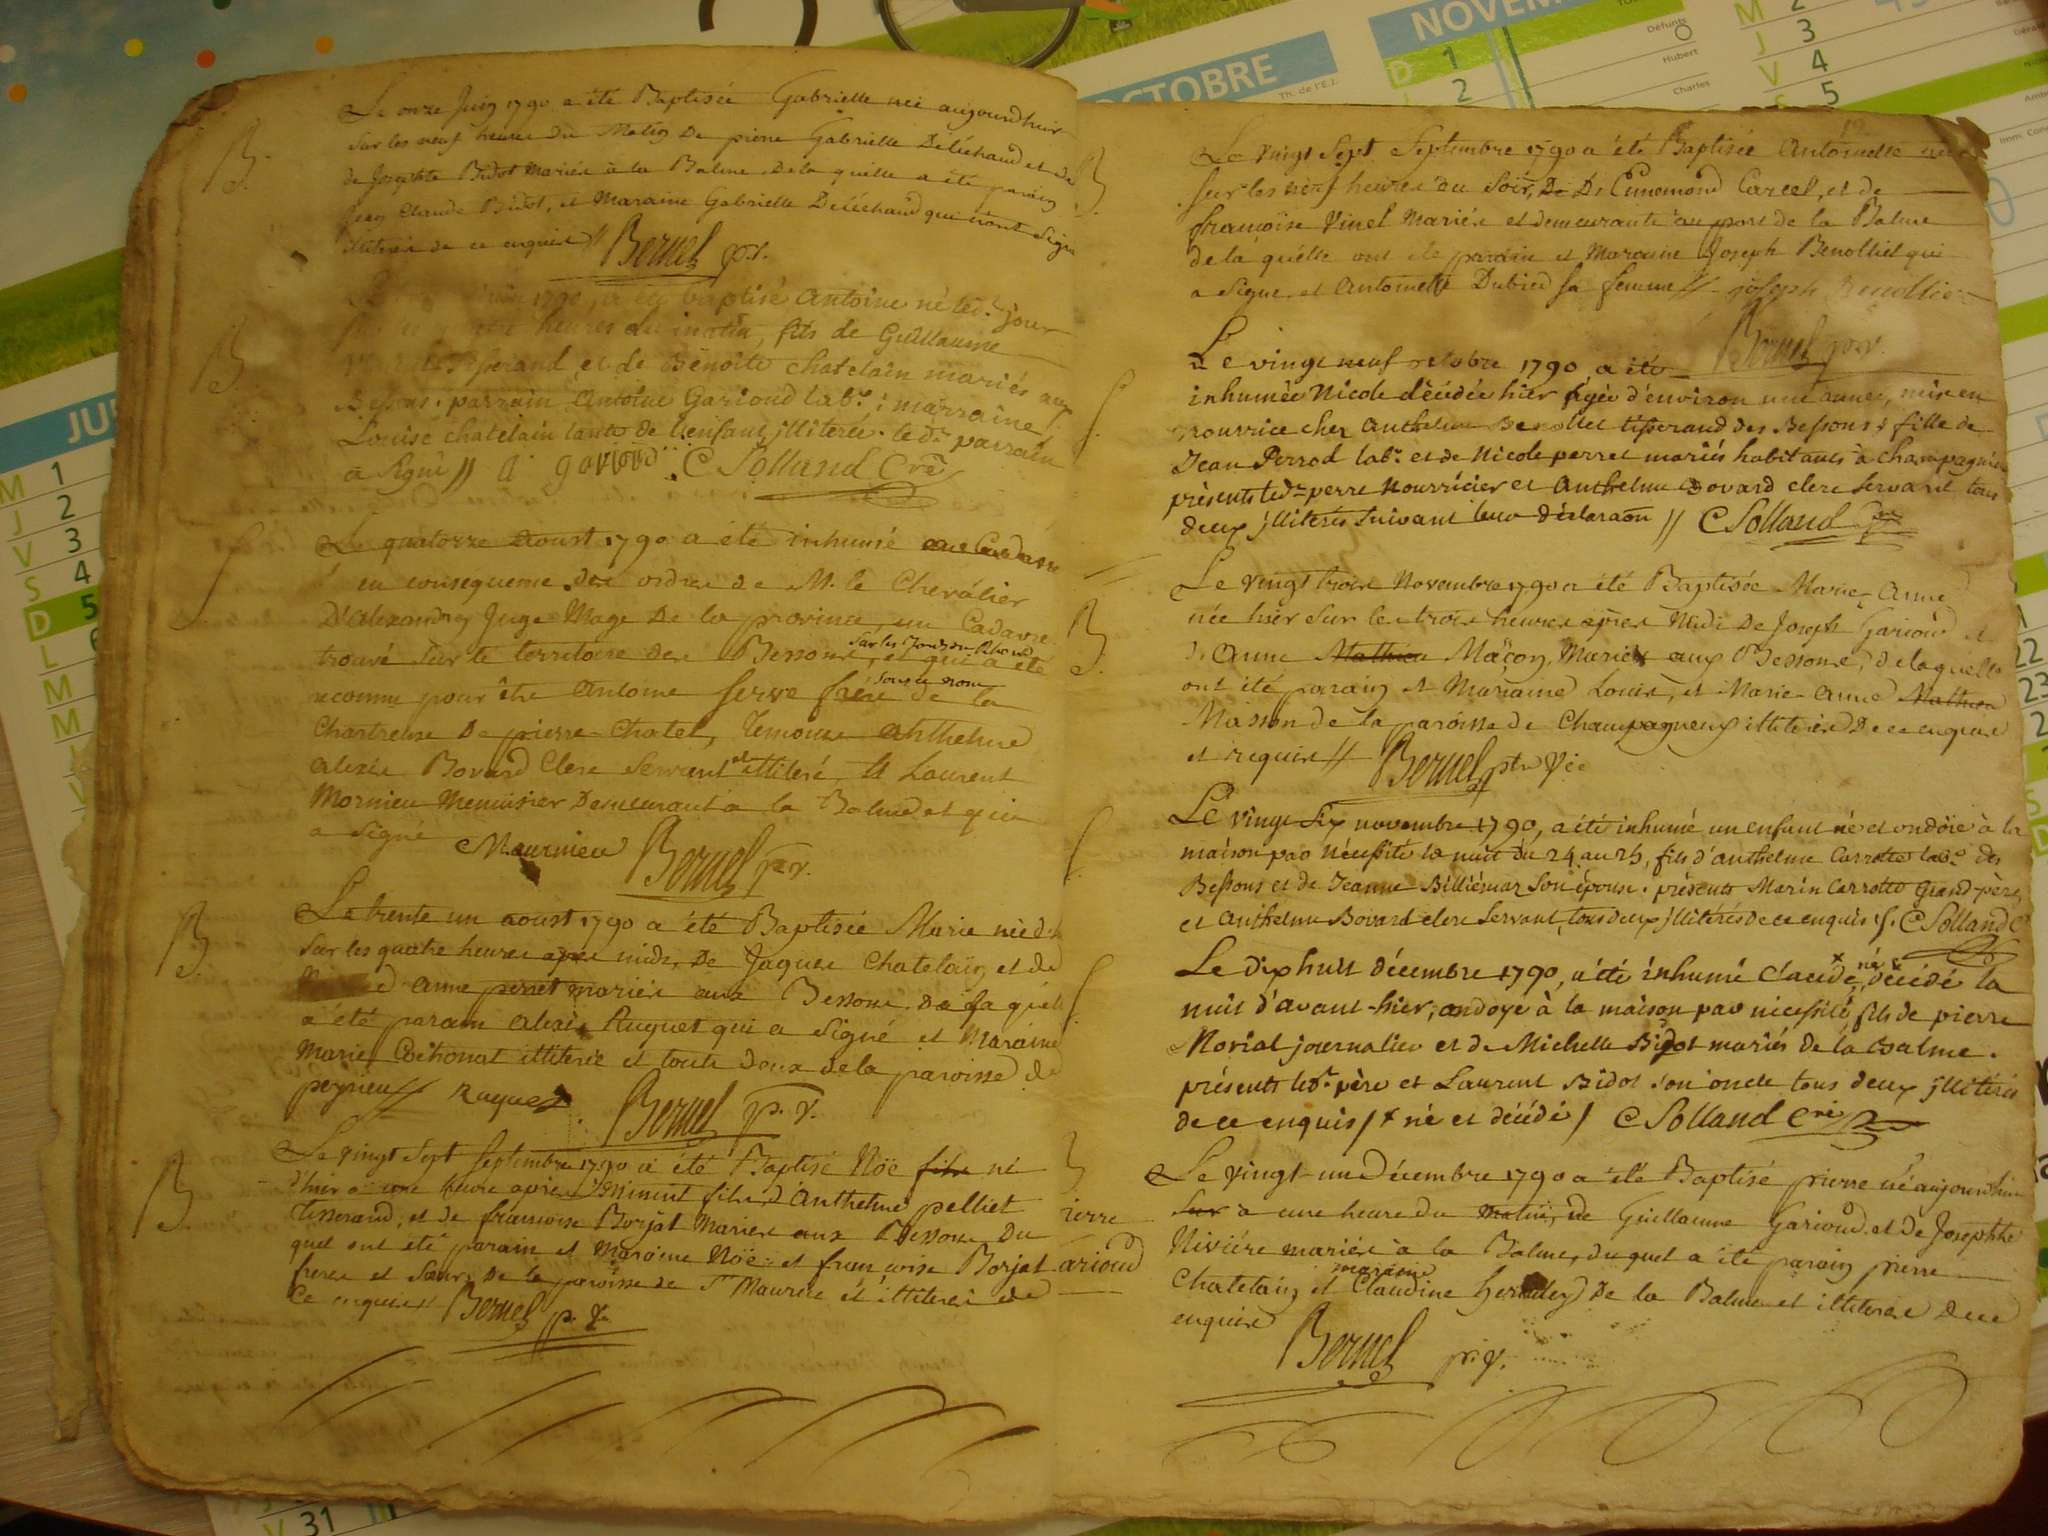 Le onze Juin 1790 a été Baptisée Gabrielle née aujourdhuir
sur les neuf heures du Matin De pierre Gabrielle Déléchaud et de
de Josephte Bidot Mariés à la Balme de la quelle a été parain
Jean Claude Bidot, et Maraine Gabrielle Déléchaud qui n'ont signé
illiterés de ce enquis //
Bernel p.v.
1790, a été baptisé Antoine né led.t jour
heures du matin, fils de Guillaume
et de Benoite chatelain mariés aux
Bessons. parrain Antoine Gariond lab.r; marraine
Louise chatelain tante de l'enfant illiterée. le d.t parrain
a signé // C Solland Cré
Le quatorze Aoust 1790 a été inhumé
en consequence des ordres de M. le Chevalier
D'Alexandry Juge Mage De la province, un Cadavre
sur les bords du Rhone
trouvé sur le territoire des Bessons, et qui a été
sous le nom
reconnu pour être Antoine Serve frère de la
Chartreuse De pierre-Chatel, Temoins Anthelme
alexis Bovard Clerc servant et illiteré, et Laurent
Mornieu Menuisier Demeurant à la Balme et qui
a signé
Mournieu Bernel p.v.
Le trente un aoust 1790 a été Baptisée Marie née
sur les quatre heures après midi, De Jaques Chatelain et de
anne perret mariés aux Bessons de la quelle
a été parain alexis Ruguet qui a signé et Maraine
Marie illiterée et touts deux de la paroisse de
peyrieu // Raguet Bernel p. v.
Le vingt sept septembre 1790 a été Baptisé Noë fils né
d'hier à une heure après minuit fils d'Anthelme pelliet
tisserand, et de françoise Borjat Mariés aux Bessons Du
quel ont été parain et Maraine Noë et françoise Borjat
frere et sœur De la paroisse de S.t Maurice et illiterés de
Ce enquis // Bernel p. v.
ierre
ariond
Le vingt sept Septembre 1790 a été Baptisée Antoinette née
sur les neuf heures du soir, De Dr Ennemond Carcel, et de
françoise Vinel Mariés et demeurants au port de la Balme
de la quelle ont été parain et Maraine Joseph Benolliet qui
a signé et Antoinette Dubied sa femme // joseph Benollie
Bernel p.v.
Le vingt neuf octobre 1790 a été
inhumée Nicole décédée hier agée d'environ une année, mise en
nourrice chez Anthelme Benolliet tisserand des Bessons; fille de
Jean Perrod lab.r et de Nicole perret mariés habitants à champagneu
présents led.t perre Nourricier et Anthelme Bovard clerc servant tous
deux illiterés suivant leur déclaraon // C Solland
Le vingt trois Novembre 1790 a été Baptisée Marie-Anne
née hier sur les trois heures après Midi De Joseph Gariond et
d'Anne Mathieu Maçon, Mariés aux Bessons, de la quelle
ont été parain et Maraine Louis, et Marie-anne Mathieu
Masson de la paroisse de Champagneux illiterés De ce enquis
et requis // Bernel ptre Vic
Le vingt six novembre 1790, a été inhumé un enfant né et ondoié à la
maison par nécessité la nuit du 24 au 25, fils d'anthelme Carrotte lab.r des
Bessons et de Jeanne Billiémaz son épouse. présents Marin Carrotte Grand-père,
et Anthelme Bovard clerc servant, tous deux illitérés de ce enquis /. C Solland C
Le Dix huit décembre 1790, a été inhumé Claude, né & décédé la
nuit d'avant-hier, ondoyé à la maison par nécessité, fils de pierre
Moriat journalier et de Michelle Bidot mariés de la Balme.
présents led.t père et Laurent Bidot son oncle tous deux illitérés
de ce enquis / + né et décédé / C Solland Cré
Le vingt-un Décembre 1790 a été Baptisé pierre né aujourdhui
sur à une heure du matin, de Guillaume Gariond, et de Josephte
Niviére mariés à la Balme, du quel a été parain pierre
maraine
Chatelain et Claudine De la Balme et illiterés de ce
enquis
Bernel p.v.
OCTOBRE
NOVEM
Th. de l'E.J.
Défunts
Hubert
Charles
D 1
2
M 2
J 3
V 4
S 5
JU
M 1
J 2
V 3
S 4
D 5
L 6
M
M
J
V
V 31
22
23